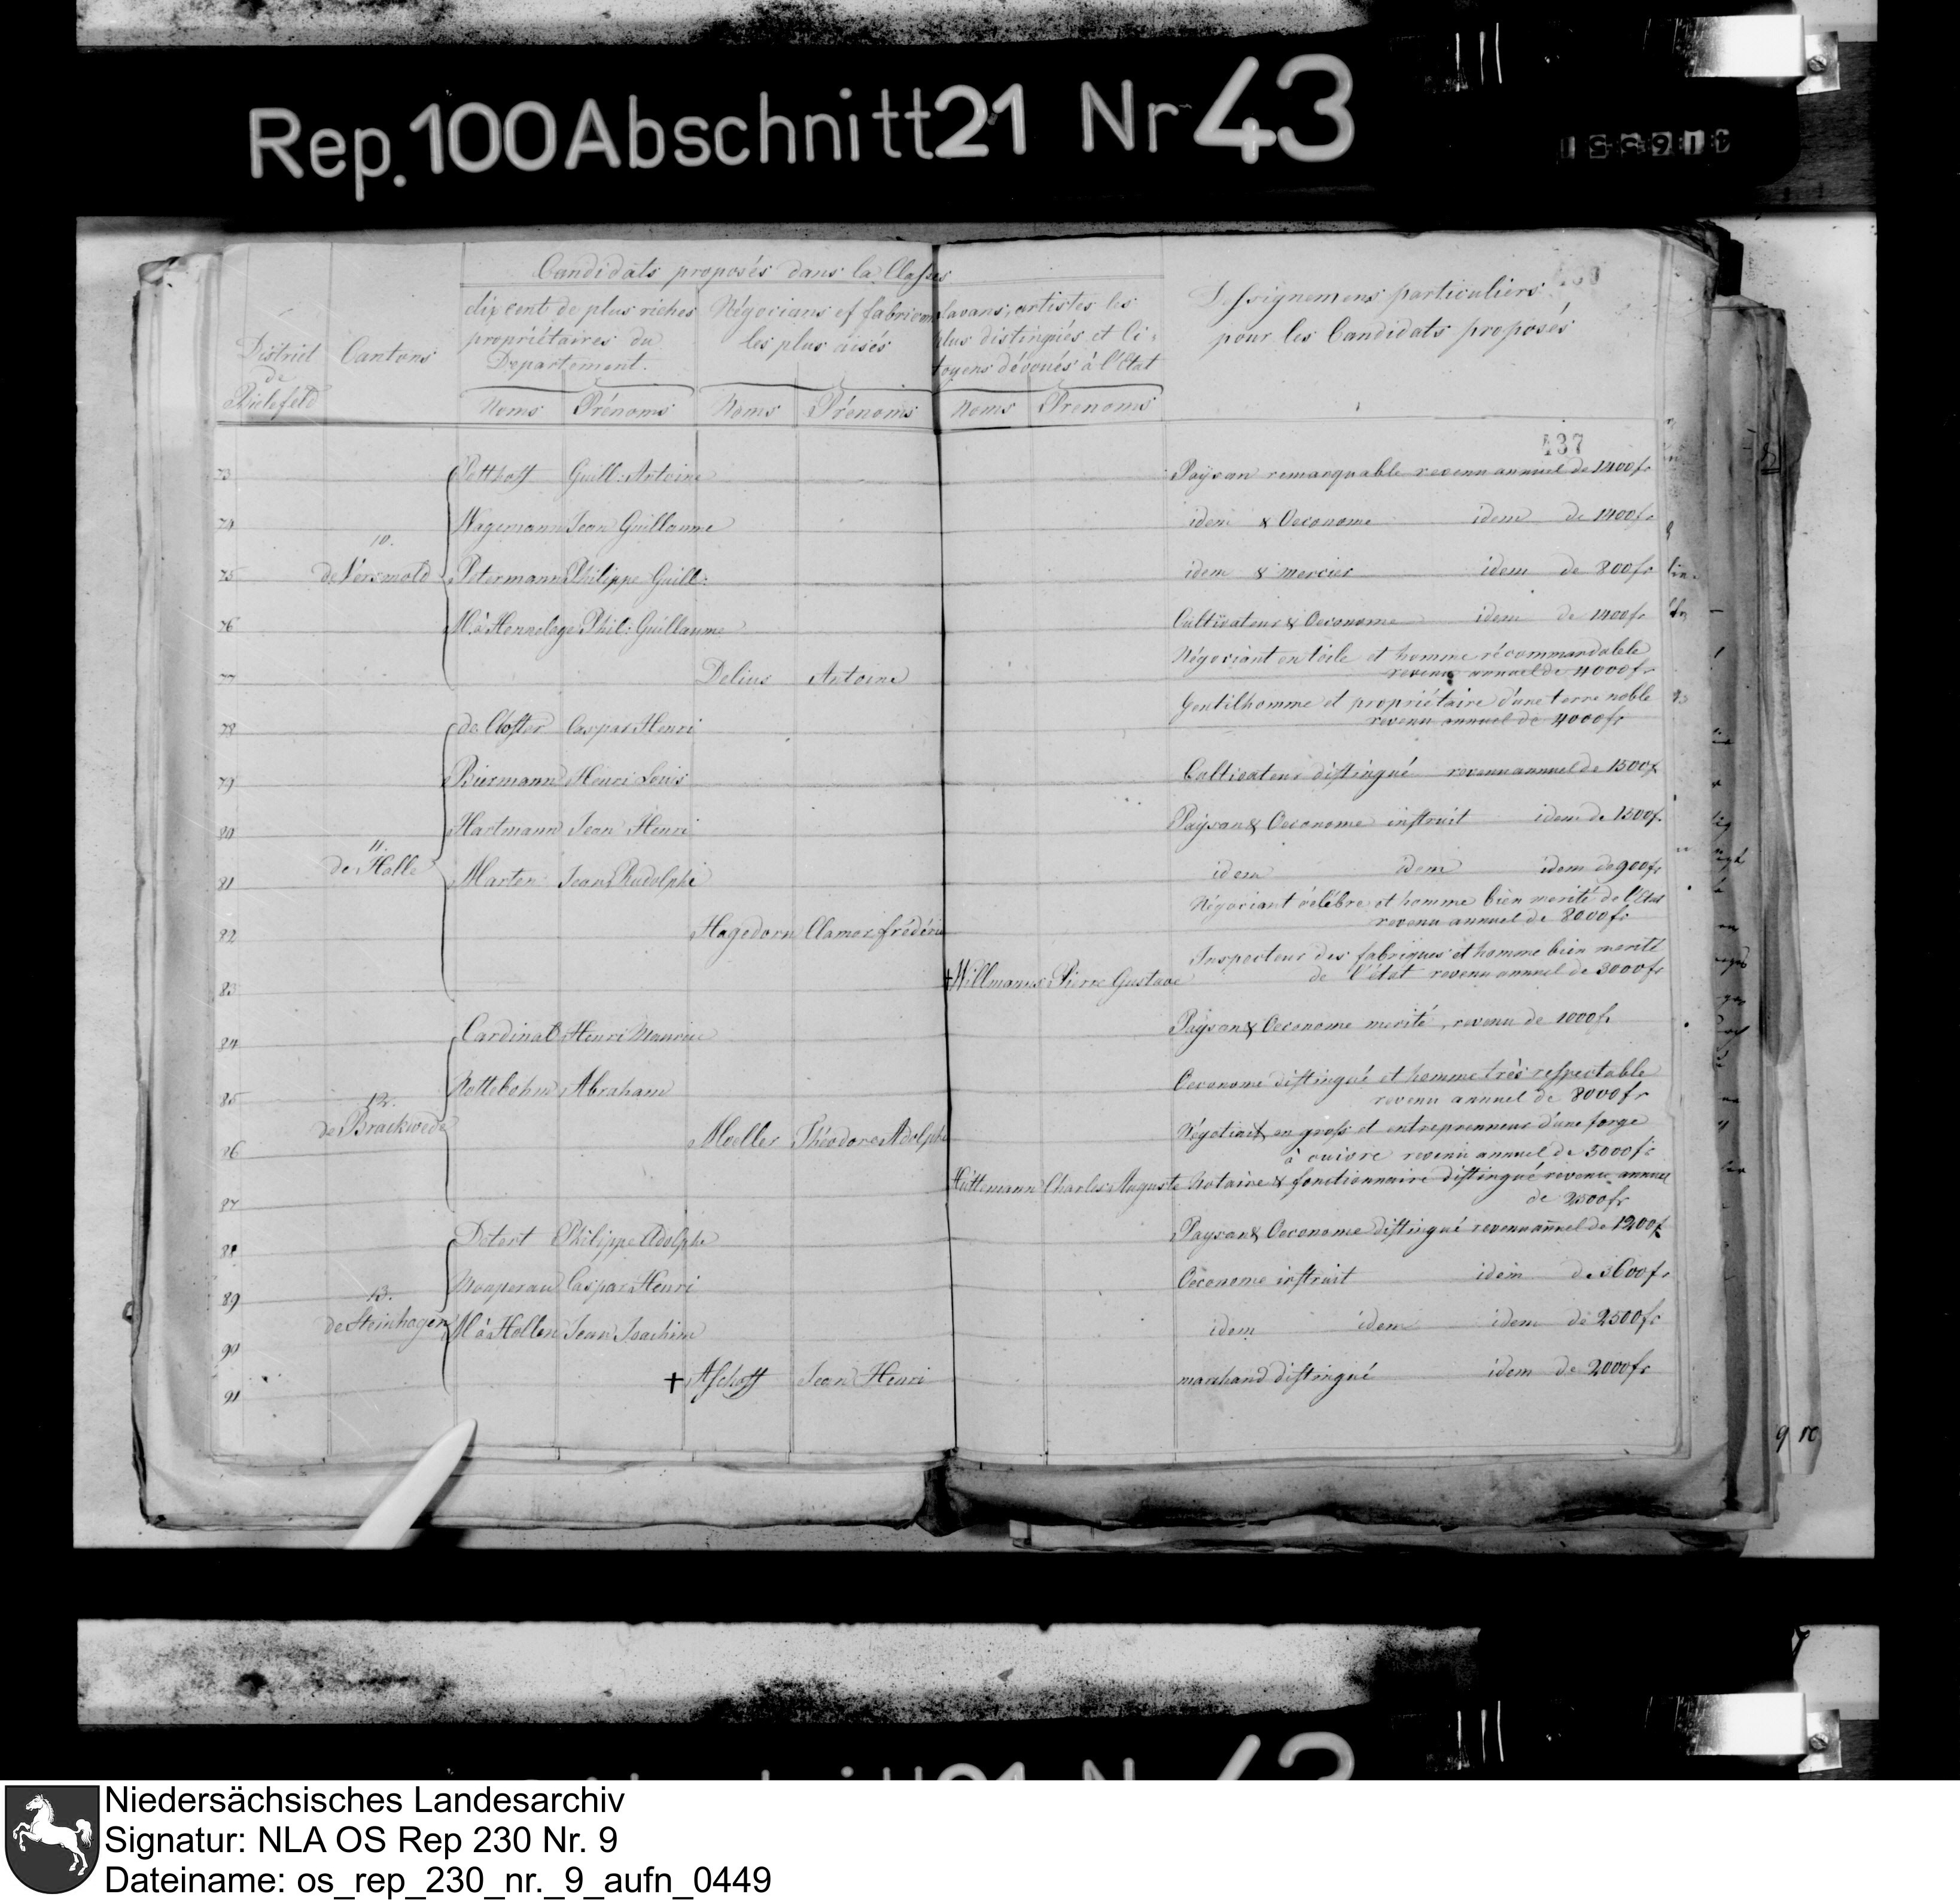 Rep. 100 Abschnitt 21 Nr 43
Candidats proposés dans la Classes
District de Bielefeld
Cantons
dix cent de plus riches propriétaires du Departement.
Négocians et fabricans les plus aisés
savans, artistes les plus distingués et citoyens dévoués à l'Etat
Noms Prénoms Noms Prénoms Noms Prenoms
pour les Candidats proposés
437
73 Potthoff Guill: Antoine Paÿsan remarquable revenu annuel de 1400 fr
74 Wagemann Jean Guillaume idem & Oeconome idem de 1400 fr
10. de Versmold
75 Petermann Philippe Guill: idem & mercier idem de 800 fr
76 M. à Hennelage Phil: Guillaume Cultivateur & Oeconome idem de 1400 fr
77 Delius Antoine Négociant en toile et homme récommandable
revenu annuel de 4000 fr
78 de Closter Caspar Henri Gentilhomme et propriétaire d'une terre noble
revenu annuel de 4000 fr
79 Biermann Henri Louis Cultivateur distingué revenu annuel de 1500 fr
80 Hartmann Jean Henri Paÿsan & Oeconome instruit idem de 1500 fr.
11. de Halle
81 Marten Jean Rudolphe idem idem idem de 900 fr
82 Hagedorn Clamor frédéric Négociant célébre et homme bien merité de l'Etat
revenu annuel de 8000 fr
83 † Willmanns Pierre Gustave Inspecteur des fabriques et homme bien merité
de l'état revenu annuel de 3000 fr
84 Cardinal Henri Maurice Paÿsan & Oeconome merité, revenu de 1000 fr
85 Rottekohm Abraham Oeconome distingué et homme très respectable
revenu annuel de 8000 fr
12. de Brackwede
86 Moeller Théodore Adolphe Négotiant en gross et entreprenneur d'une forge
à cuivre revenu annuel de 5000 fr
87 Hüttemann Charles Auguste Notaire & fonctionnaire distingué revenu annuel
de 2500 fr
88 Detert Philippe Adolphe Paysan & Oeconome distingué revenu annuel de 1200 fr
89 Caspar Henri Oeconome instruit idem de 3600 fr
13. de Steinhagen
90 M. à Hollen Jean Joachim idem idem idem de 2500 fr
91 † Aschoff Jean Henri marchand distingué idem de 2000 fr
Niedersächsisches Landesarchiv
Signatur: NLA OS Rep 230 Nr. 9
Dateiname: os_rep_230_nr._9_aufn_0449